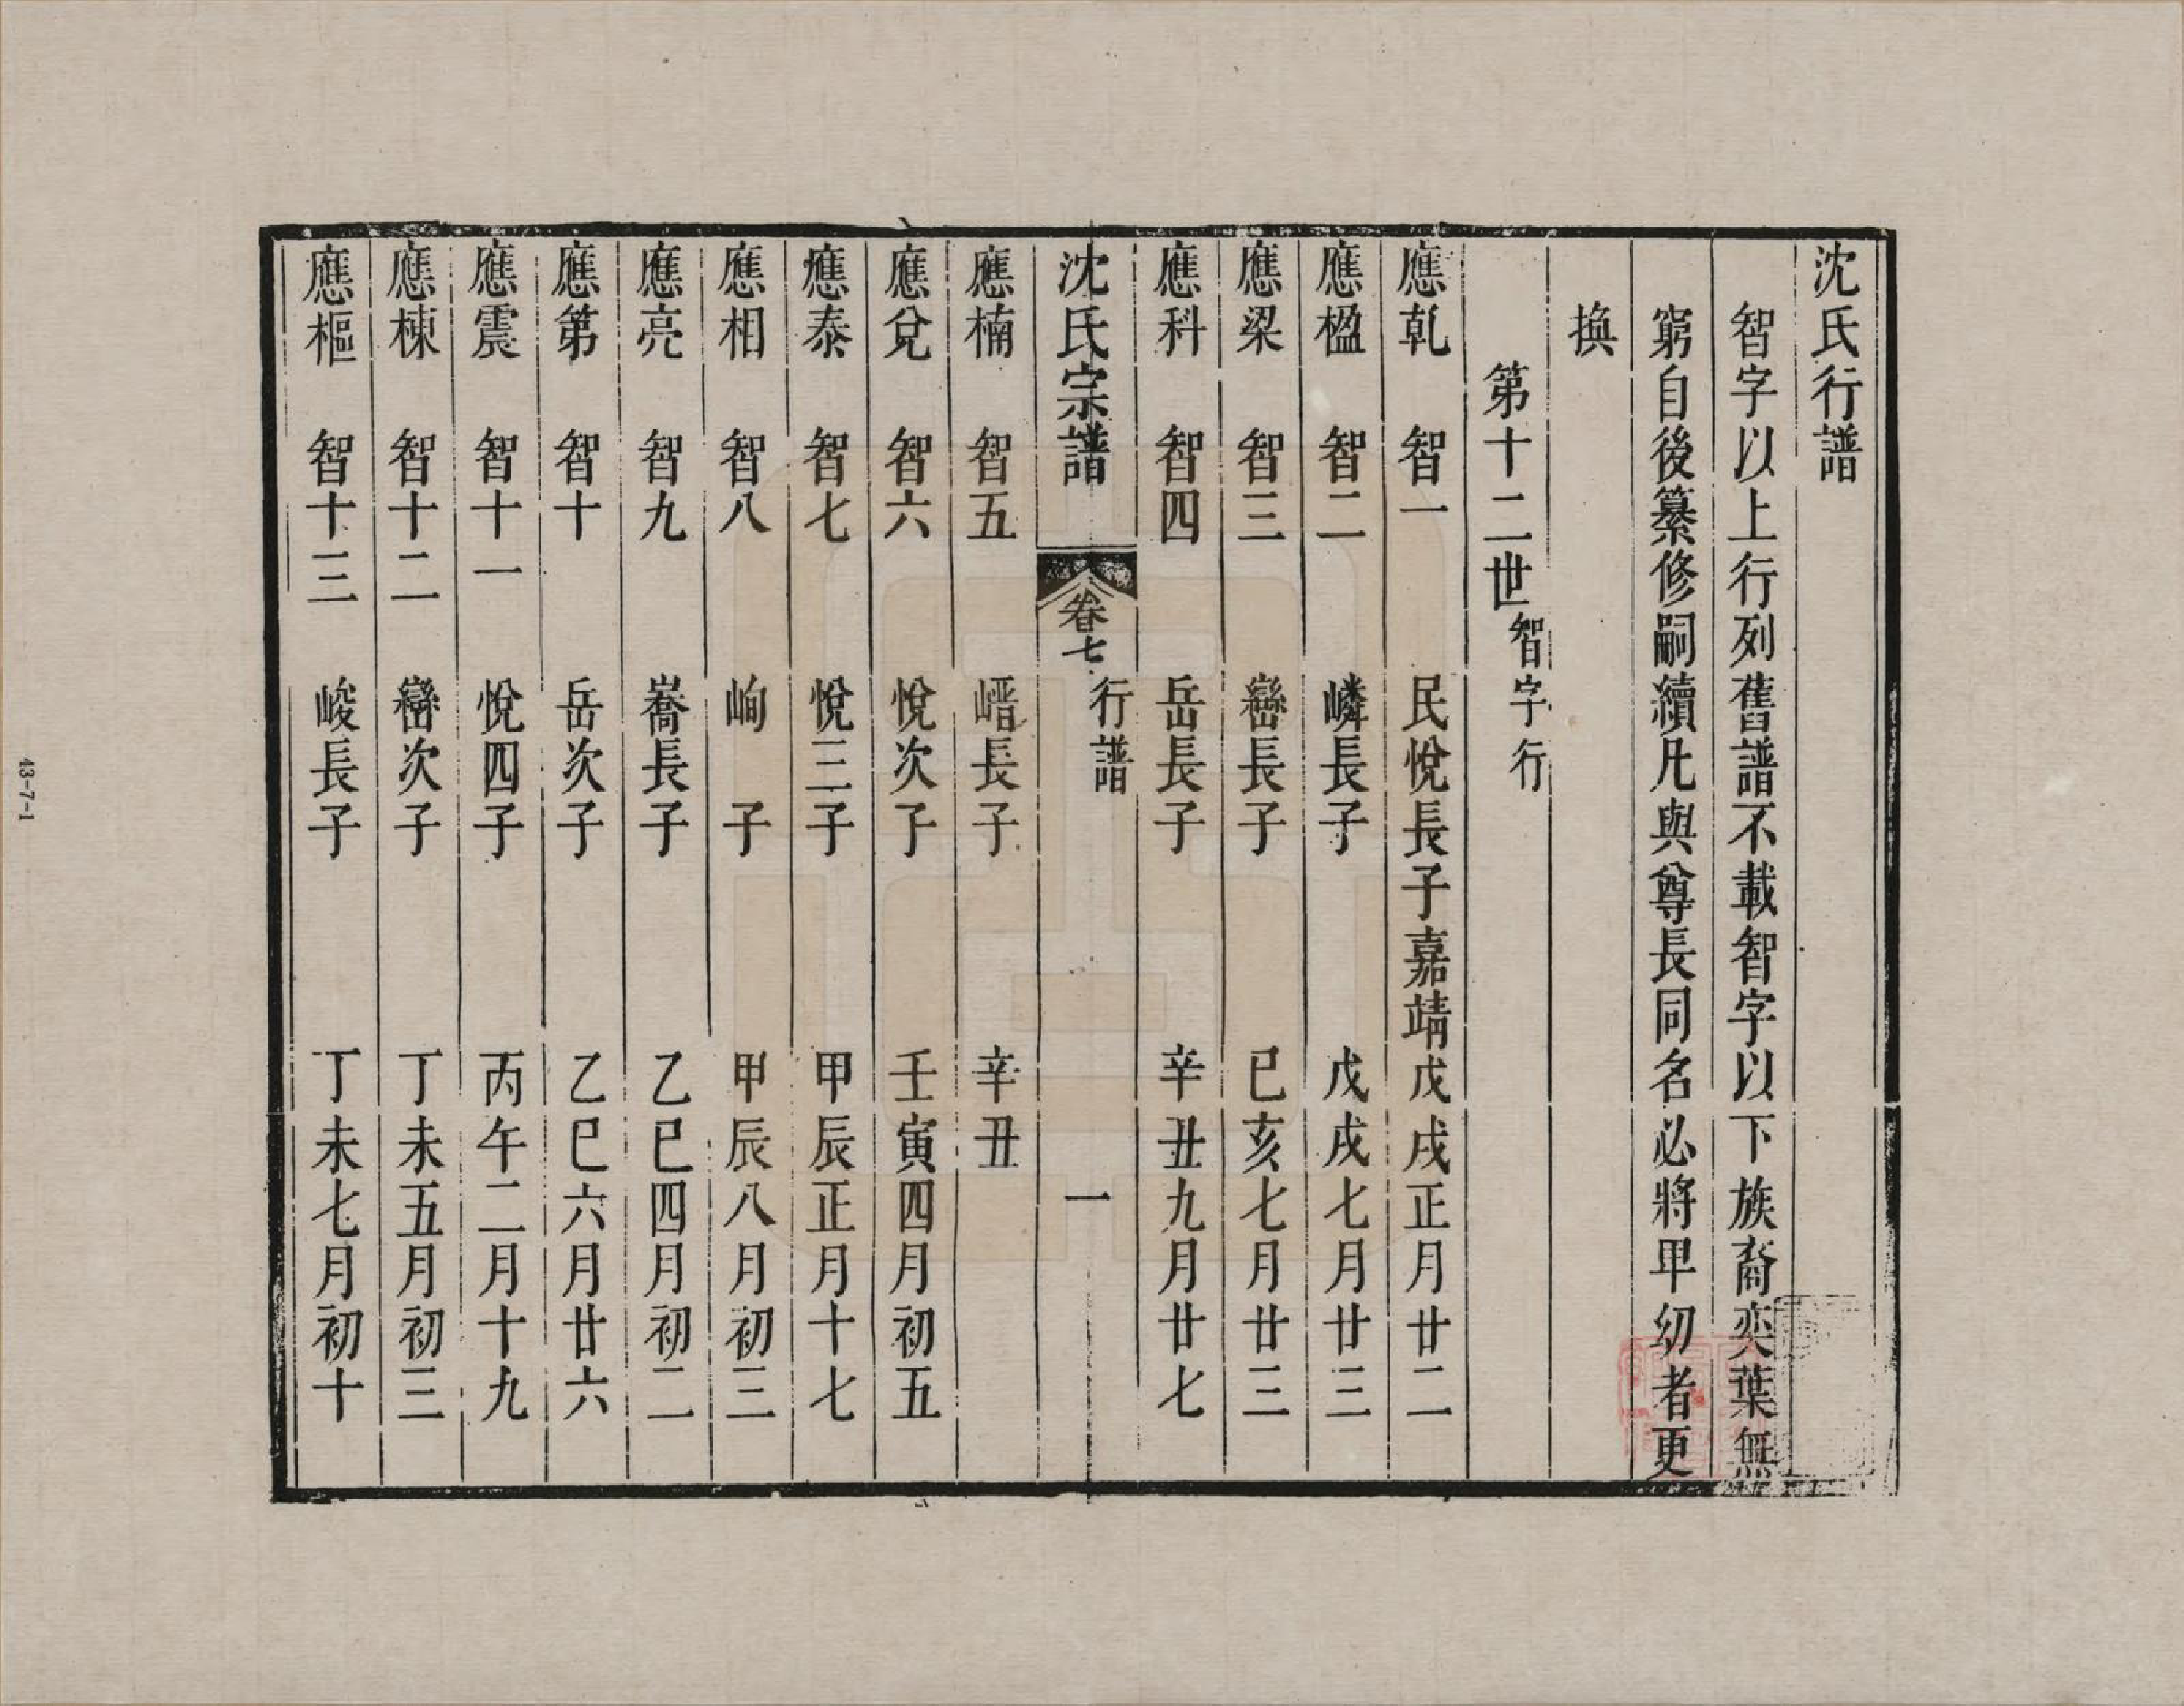 沈氏行譜
智字以上行列舊譜不載智字以下族裔奕葉無
窮自後纂修嗣續凡與尊長同名必將卑幼者更
換
第十二世智字行
應乾 智一 民悅長子嘉靖戊戌正月廿二
應楹 智二 嶙長子 戊戌七月廿三
應梁 智三 巒長子 己亥七月廿三
應科 智四 岳長子 辛丑九月廿七
沈氏宗譜 卷七 行譜 一
應楠 智五 㟴長子 辛丑
應兌 智六 悅次子 壬寅四月初五
應泰 智七 悅三子 甲辰正月十七
應相 智八 峋子 甲辰八月初三
應亮 智九 嵩長子 乙巳四月初二
應第 智十 岳次子 乙巳六月廿六
應震 智十一 悅四子 丙午二月十九
應棟 智十二 巒次子 丁未五月初三
應樞 智十三 峻長子 丁未七月初十
43-7-1